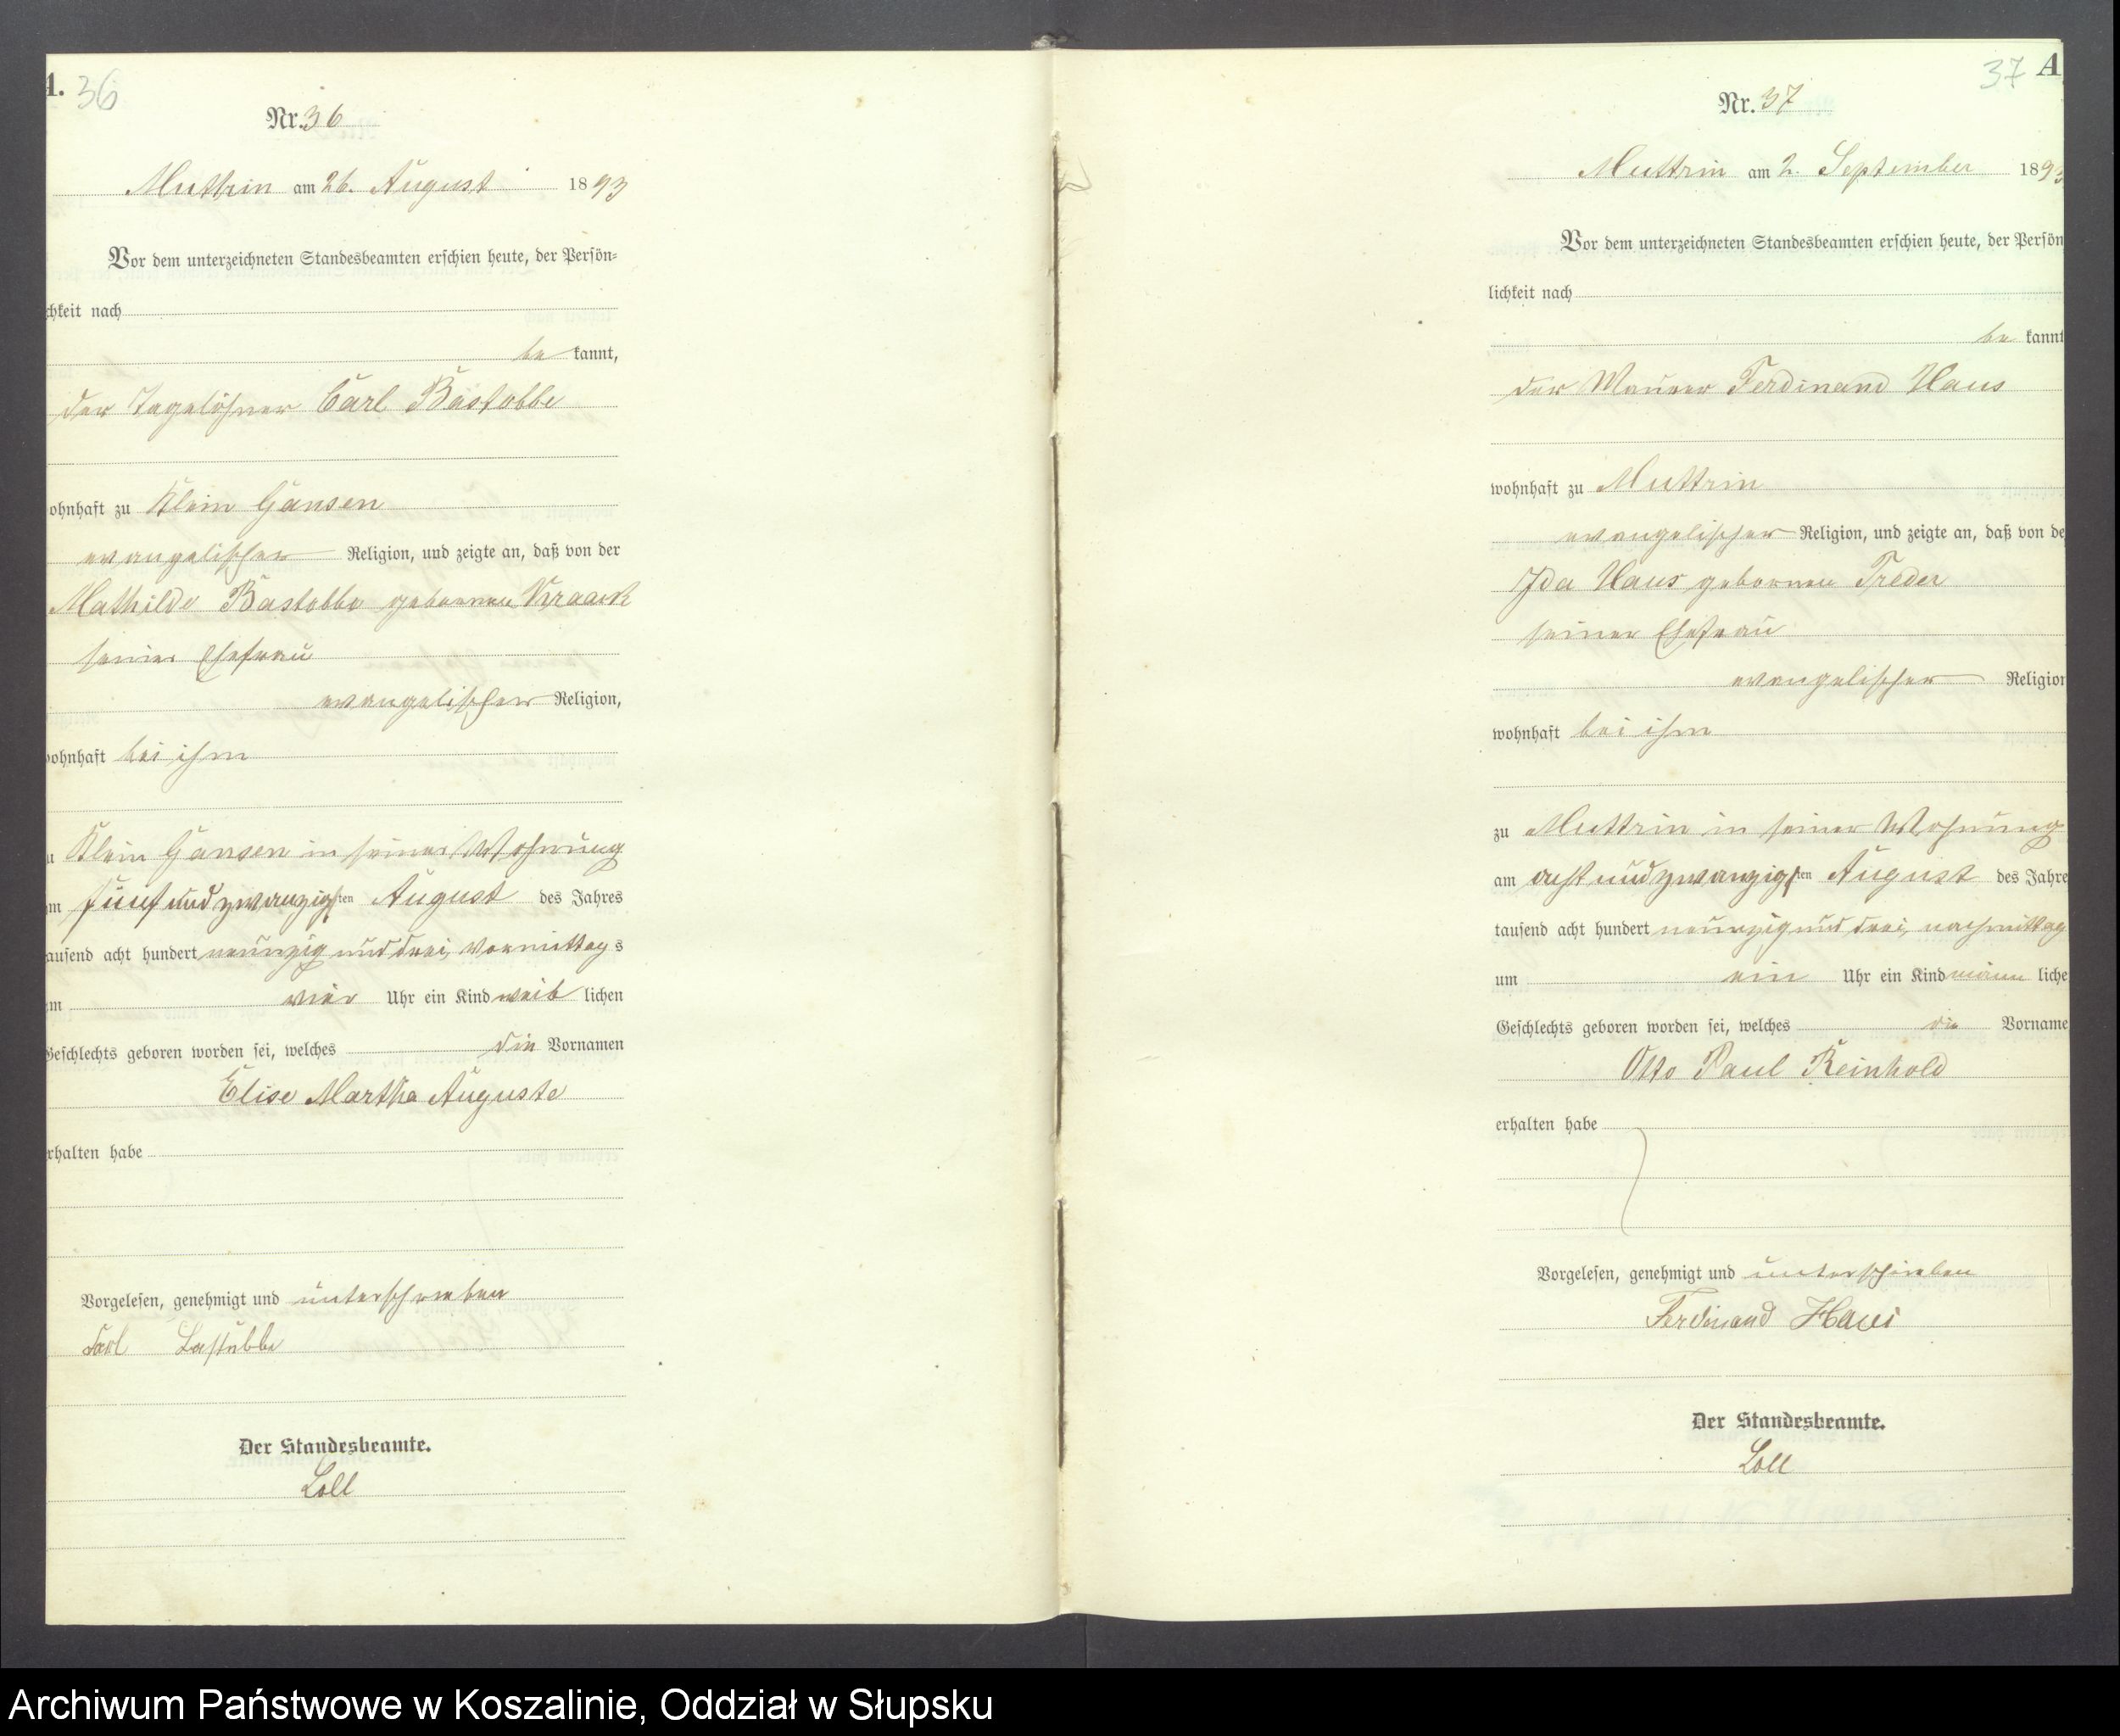 A. 36
Nr. 36
Muttrin am 26. August 1893
Vor dem unterzeichneten Standesbeamten erschien heute, der Persön-
chkeit nach
be kannt,
der Tagelöhner Carl Bastobbe
ohnhaft zu Klein Gansen
evangelischer Religion, und zeigte an, daß von der
Mathilde Bastobbe geborenen Kraack
seiner Ehefrau
evangelischer Religion,
wohnhaft bei ihm
u Klein Gansen in seiner Wohnung
m fünf und zwanzigsten August des Jahres
ausend acht hundert neunzig und drei, Vormittags
m vier Uhr ein Kind weib lichen
Geschlechts geboren worden sei, welches die Vornamen
Elise Martha Auguste
rhalten habe
Vorgelesen, genehmigt und unterschrieben
Karl Bastubbe
Der Standesbeamte.
Loll
37 A
Nr. 37
Muttrin am 2. September 1893
Vor dem unterzeichneten Standesbeamten erschien heute, der Persön
lichkeit nach
be kannt
der Maurer Ferdinand Haus
wohnhaft zu Muttrin
evangelischer Religion, und zeigte an, daß von de
Ida Haus geborenen Treder
seiner Ehefrau
evangelischer Religion
wohnhaft bei ihm
zu Muttrin in seiner Wohnung
am acht und zwanzigsten August des Jahre
tausend acht hundert neunzig und drei, nachmittag
um ein Uhr ein Kind männ liche
Geschlechts geboren worden sei, welches die Vorname
Otto Paul Reinhold
erhalten habe
Vorgelesen, genehmigt und unterschrieben
Ferdinand Haus
Der Standesbeamte.
Loll
Archiwum Państwowe w Koszalinie, Oddział w Słupsku